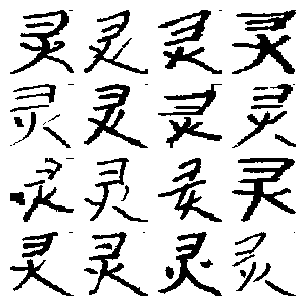 灵灵灵灵
灵灵灵灵
灵灵灵灵
灵灵灵灵